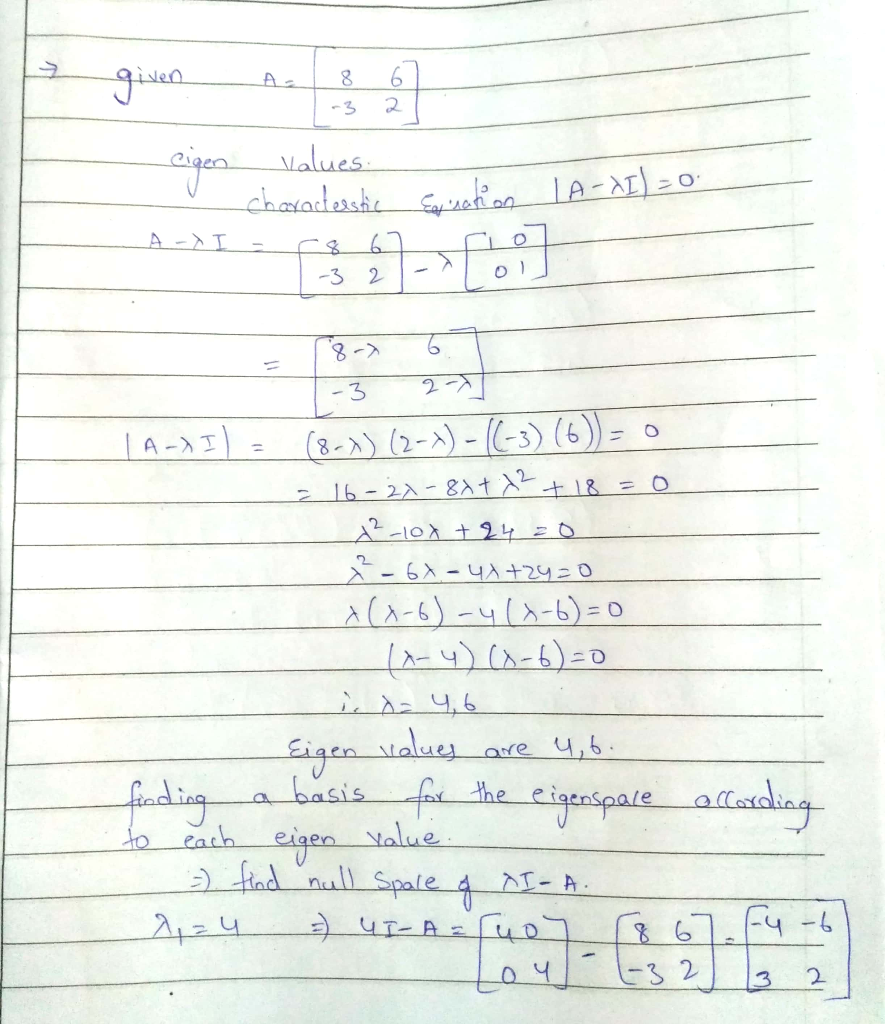 → given A = [ 8 6
-3 2 ]
eigen values.
characterstic Equation |A-λI| = 0.
A-λI = [ 8 6
-3 2 ] - λ [ 1 0
0 1 ]
= [ 8-λ 6
-3 2-λ ]
|A-λI| = (8-λ) (2-λ) - ((-3) (6)) = 0
= 16 - 2λ - 8λ + λ² + 18 = 0
λ² - 10λ + 24 = 0
λ² - 6λ - 4λ + 24 = 0
λ(λ-6) - 4(λ-6) = 0
(λ-4) (λ-6) = 0
i. λ = 4,6
Eigen values are 4,6.
finding a basis for the eigenspace according
to each eigen value.
⇒ find null Space of λI-A.
λ₁ = 4 ⇒ 4I-A = [ 4 0
0 4 ] - [ 8 6
-3 2 ] = [ -4 -6
3 2 ]